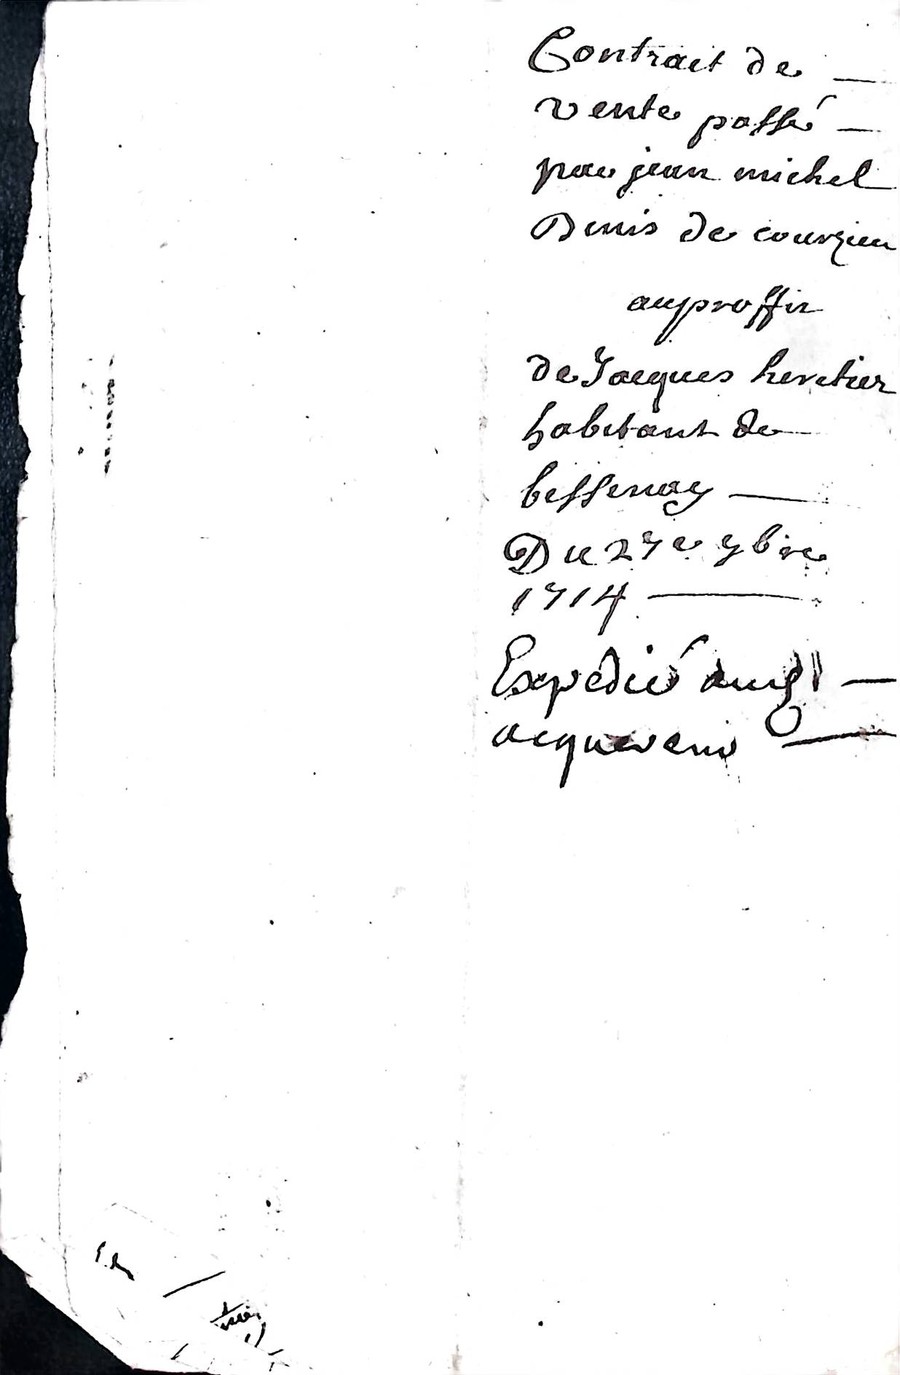 Contrait de
vente passé
par jean michel
Denis de courzieu
auproffit
de Jacques heretier
habitant de
bessenay
Du 27e 9bre
1714
Expedié audit
acquereur